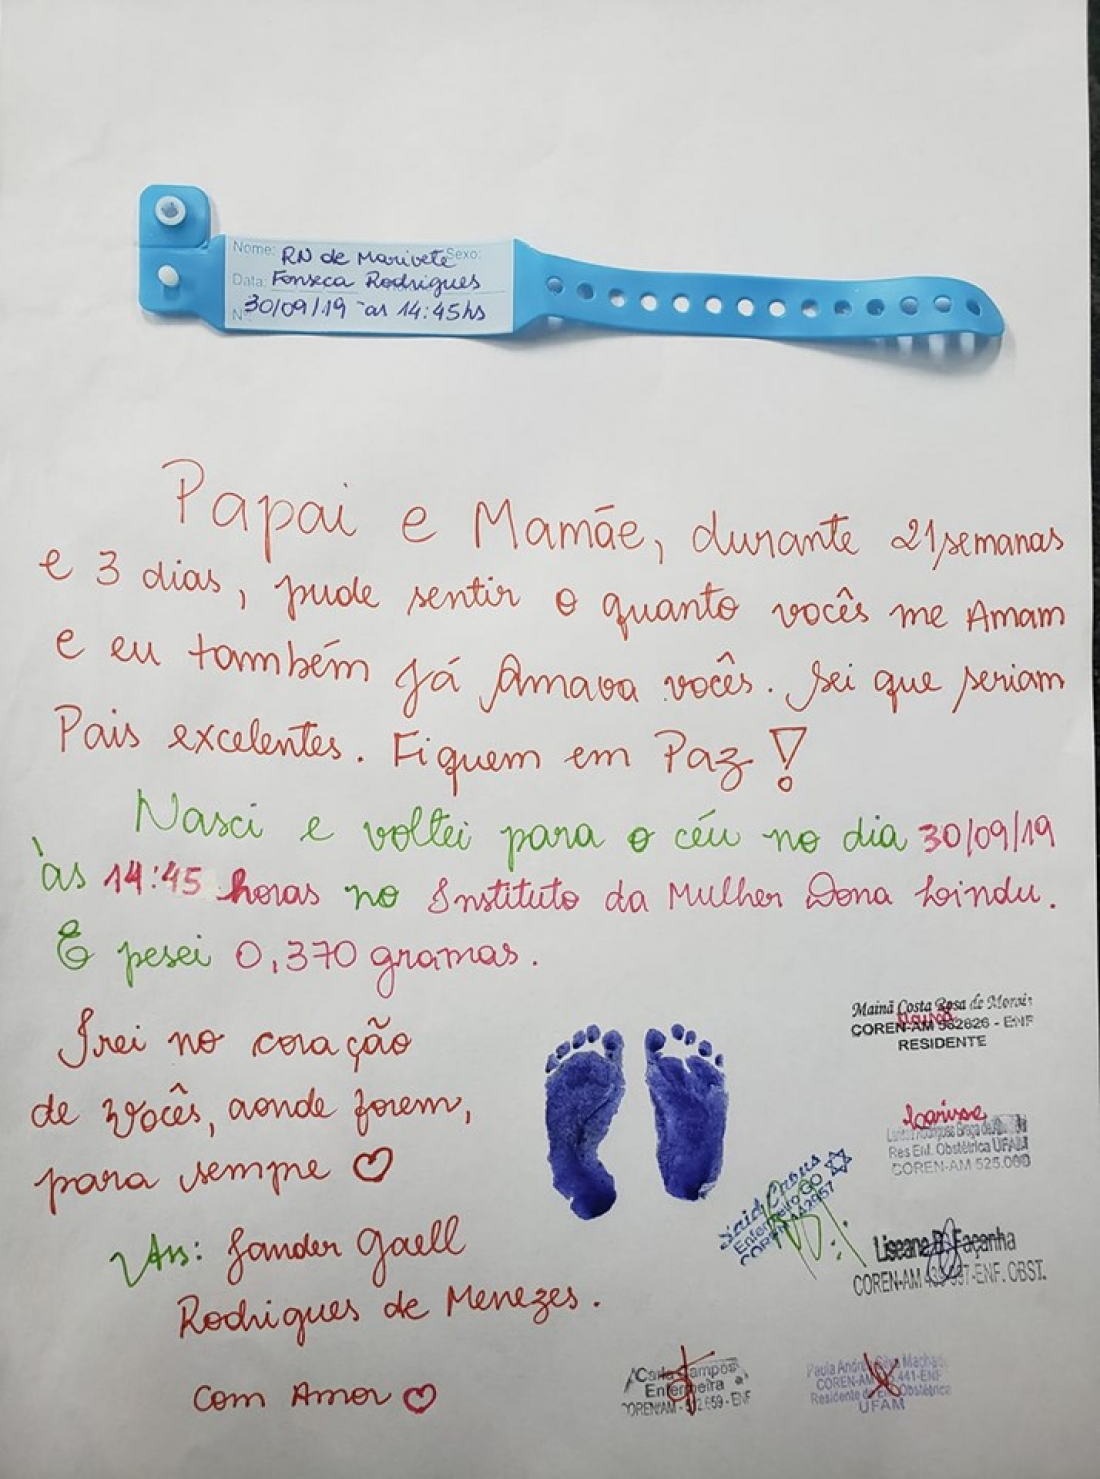 Nome: RN de Marivete Sexo:
Data: Fonseca Rodrigues
N 30/09/19 às 14:45hs
Papai e Mamãe, durante 21 semanas
e 3 dias, pude sentir o quanto vocês me Amam
e eu também já Amava vocês. Sei que seriam
Pais excelentes. Fiquem em Paz!
Nasci e voltei para o céu no dia 30/09/19
às 14:45 horas no Instituto da Mulher Dona Lindu.
E pesei 0,370 gramas.
Irei no coração
de vocês, aonde forem,
para sempre ♡
Ass: Jander Gaell
Rodrigues de Menezes.
Com Amor ♡
Mainã Costa Rosa de Morais
COREN-AM 982626 - ENF
RESIDENTE
Larisse
Rodrigues Braga
Res Enf. Obstétrica UFAM
COREN-AM 525.060
Enfermeiro GO
COREN 442957
Liseane B. Façanha
COREN-AM ENF. OBST.
Carla Campos
Enfermeira
COREN/AM - ENF
Paula Andréa Silva Machado
COREN-AM 441-ENF
Residente de Enf Obstétrica
UFAM